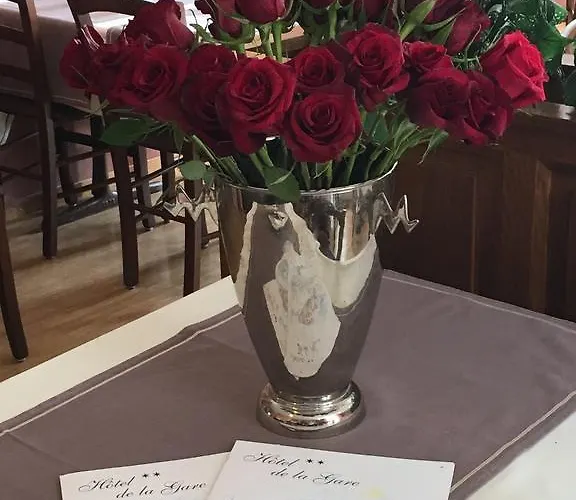 Hôtel **
de la Gare
Hôtel **
de la Gare